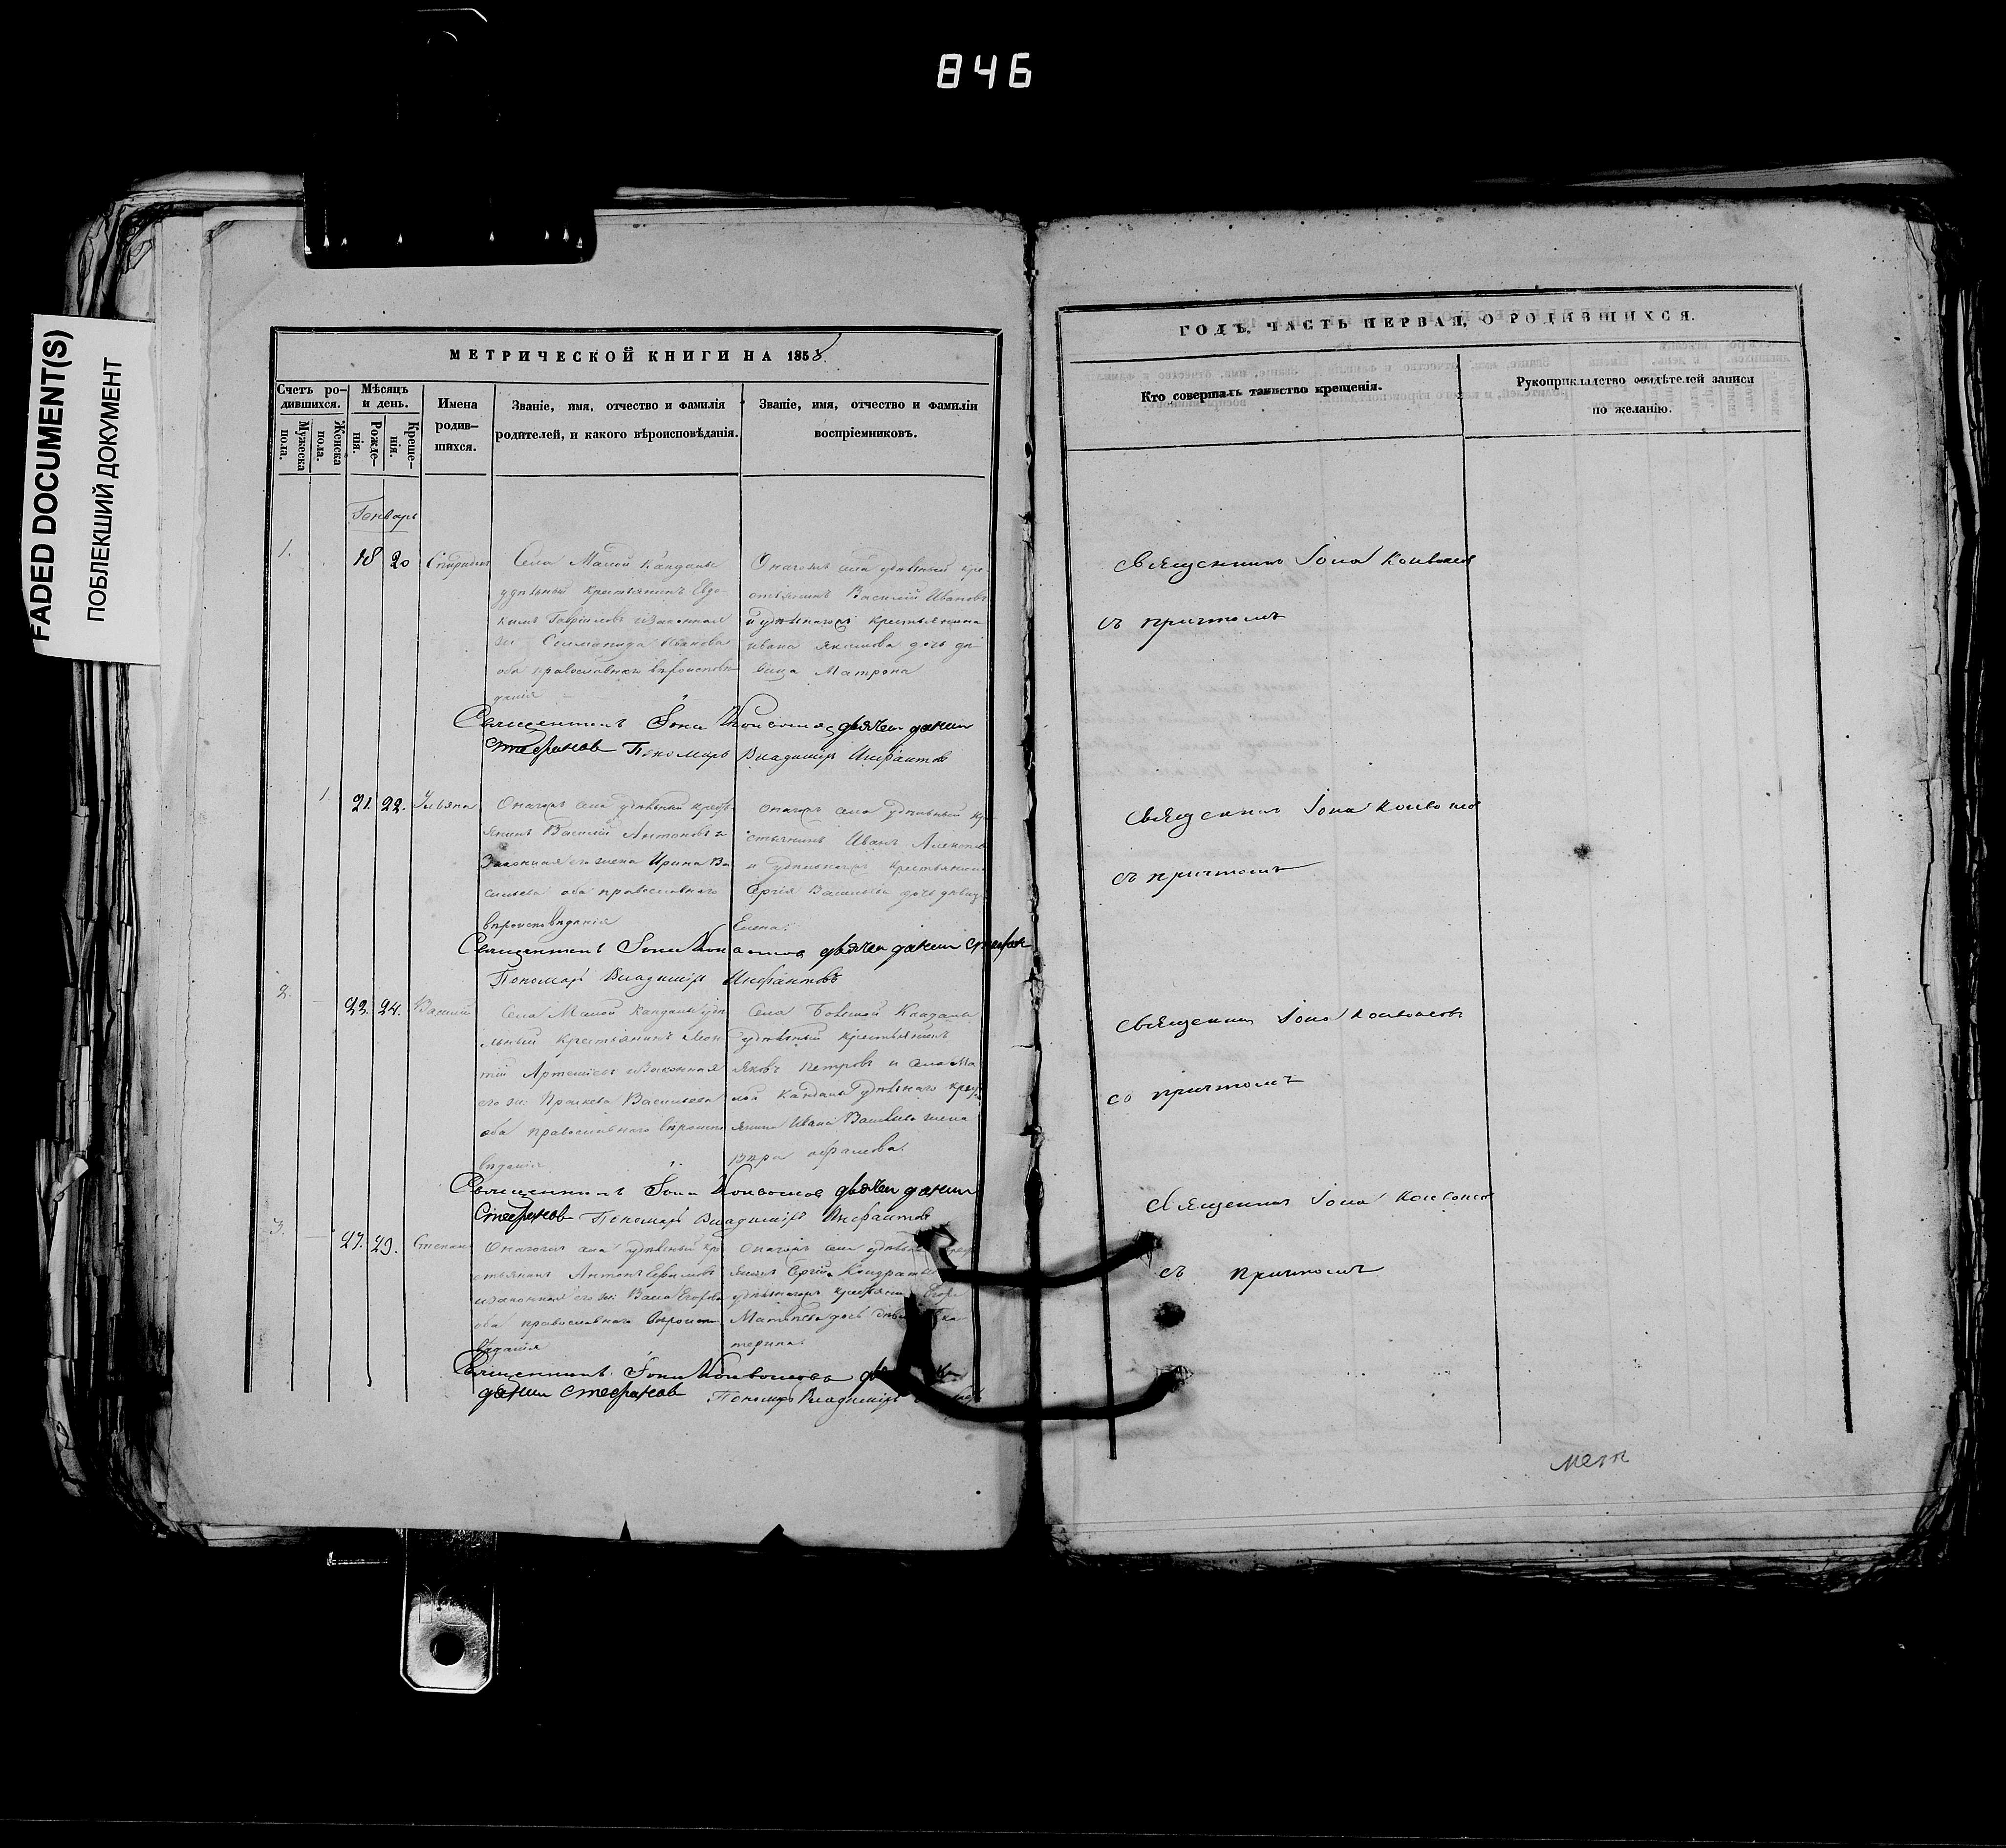 846
FADED DOCUMENT(S)
ПОБЛЕКШИЙ ДОКУМЕНТ
МЕТРИЧЕСКОЙ КНИГИ НА 1858
Счетъ ро-
дившихся.
Мужеска
пола.
Женска
пола.
Мѣсяцъ
и день.
Рожде-
нія.
Креще-
нія.
Имена
родив-
шихся.
Званіе, имя, отчество и фамилія
родителей, и какого вѣроисповѣданія.
Званіе, имя, отчество и фамиліи
воспріемниковъ.
Генварь
1.
18
20
Спиридонъ
Села Малой Кандалы
удѣльный крестьянинъ Евдо-
кимъ Гавриловъ изаконная
Иванова
оба православнаго вѣроисповѣ-
данія
Онагожъ села удѣльный кре-
стьянинъ Василій Ивановъ
и удѣльнагожъ крестьянина
Ивана Якимова дочь дѣ-
вица Матрона
Священникъ Іона дьячекъ данил
стефанов Пономарь Владиміръ Инфантов
1
21.
22.
Ульяна
Онагожъ села удѣльный кресть-
янинъ Василій Антоновъ и
Законная его жена Ирина Ва
сильева оба православнаго
вѣроисповѣданія
Онагожъ села удѣльный кре-
стьянинъ Иванъ
и удѣльнагожъ крестьянина
Сергія Васильева дочь дѣвица
Елена.
Священникъ Іона дьячек данил стефан
Пономарь Владиміръ Инфантовъ
2.
23.
24.
Василій
Села Малой Кандалы удѣ
льный крестьянинъ Леон
тій Артемьевъ изаконная
его ж: Васильева
оба православнаго вѣроиспо
вѣданія
Села Большой Кандалы
удѣльный крестьянинъ
Яковъ Петровъ и села Ма
лой Кандалы удѣльнаго кресть
янина Ивана Васильева жена
Священникъ Іона дьячек данил
Стефанов Пономарь Владиміръ Инфантов
3.
27.
29.
Степанъ
Онагожъ села удѣльный кре
стьянинъ Антонъ Ефимовъ
изаконная его ж: Егорова
оба православнаго вѣроиспо
вѣданія
Онагожъ села
Сергій Кондратьев
удѣльнагожъ
Матвѣева дочь
терина
Священникъ Іона
данил стефанов Пономарь Владиміръ
ГОДЪ, ЧАСТЬ ПЕРВАЯ, О РОДИВШИХСЯ.
Кто совершалъ таинство крещенія.
Рукоприкладство свидѣтелей записи
по желанію.
Священникъ Іона
съ причтомъ
Священникъ Іона
съ причтомъ
Священникъ Іона
со причтомъ
Священникъ Іона
съ причтомъ